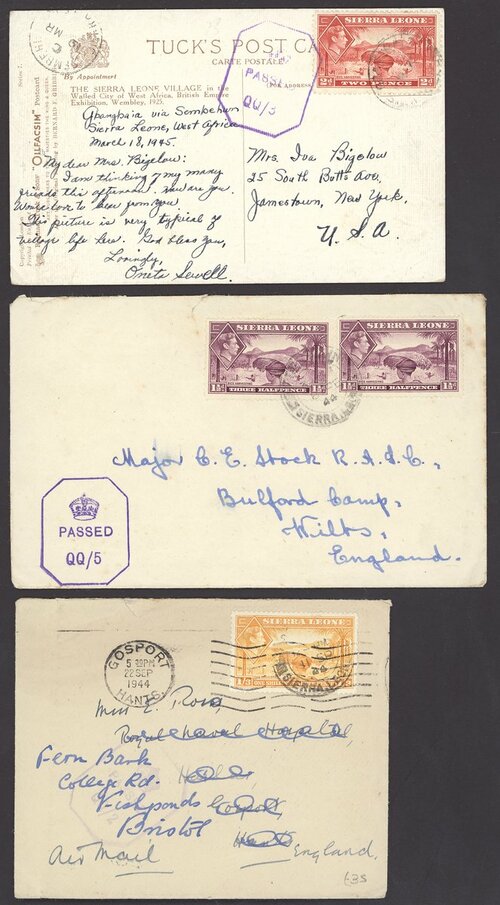 TUCK'S POST CA
CARTE POSTALE
By Appointment
(FOR ADDRESS
THE SIERRA LEONE VILLAGE in the
Walled City of West Africa, British Empire
Exhibition, Wembley, 1925.
"OILFACSIM" Postcard
PASSE
QQ/3
SIERRA LEONE
2d 2d
TWO PENCE
Gbangbaia via Sembehun
Sierra Leone, West Africa
March 18, 1945.
My dear Mrs. Bigelow:
I am thinking of my many
friends this afternoon. How are you.
Would love to hear from you.
This picture is very typical of
village life here. God bless you,
Lovingly,
Oneta Sewell.
Mrs. Iva Bigelow
25 South Butts Ave.
Jamestown, New York.
U.S.A.
SIERRA LEONE
1½d 1½d
THREE HALFPENCE
SIERRA LEONE
1½d 1½d
THREE HALFPENCE
44
SIERRA LEONE
Major C. E. Stock R.A.S.C.,
Bulford Camp,
Wilts,
England.
PASSED
QQ/5
SIERRA LEONE
1/3
GOSPORT
5 30PM
22 SEP
1944
HANTS.
Miss E. Ross,
Royal Naval Hospital,
Fern Bank
College Rd.
Fishponds Gosport,
Bristol Hants
England.
Air Mail